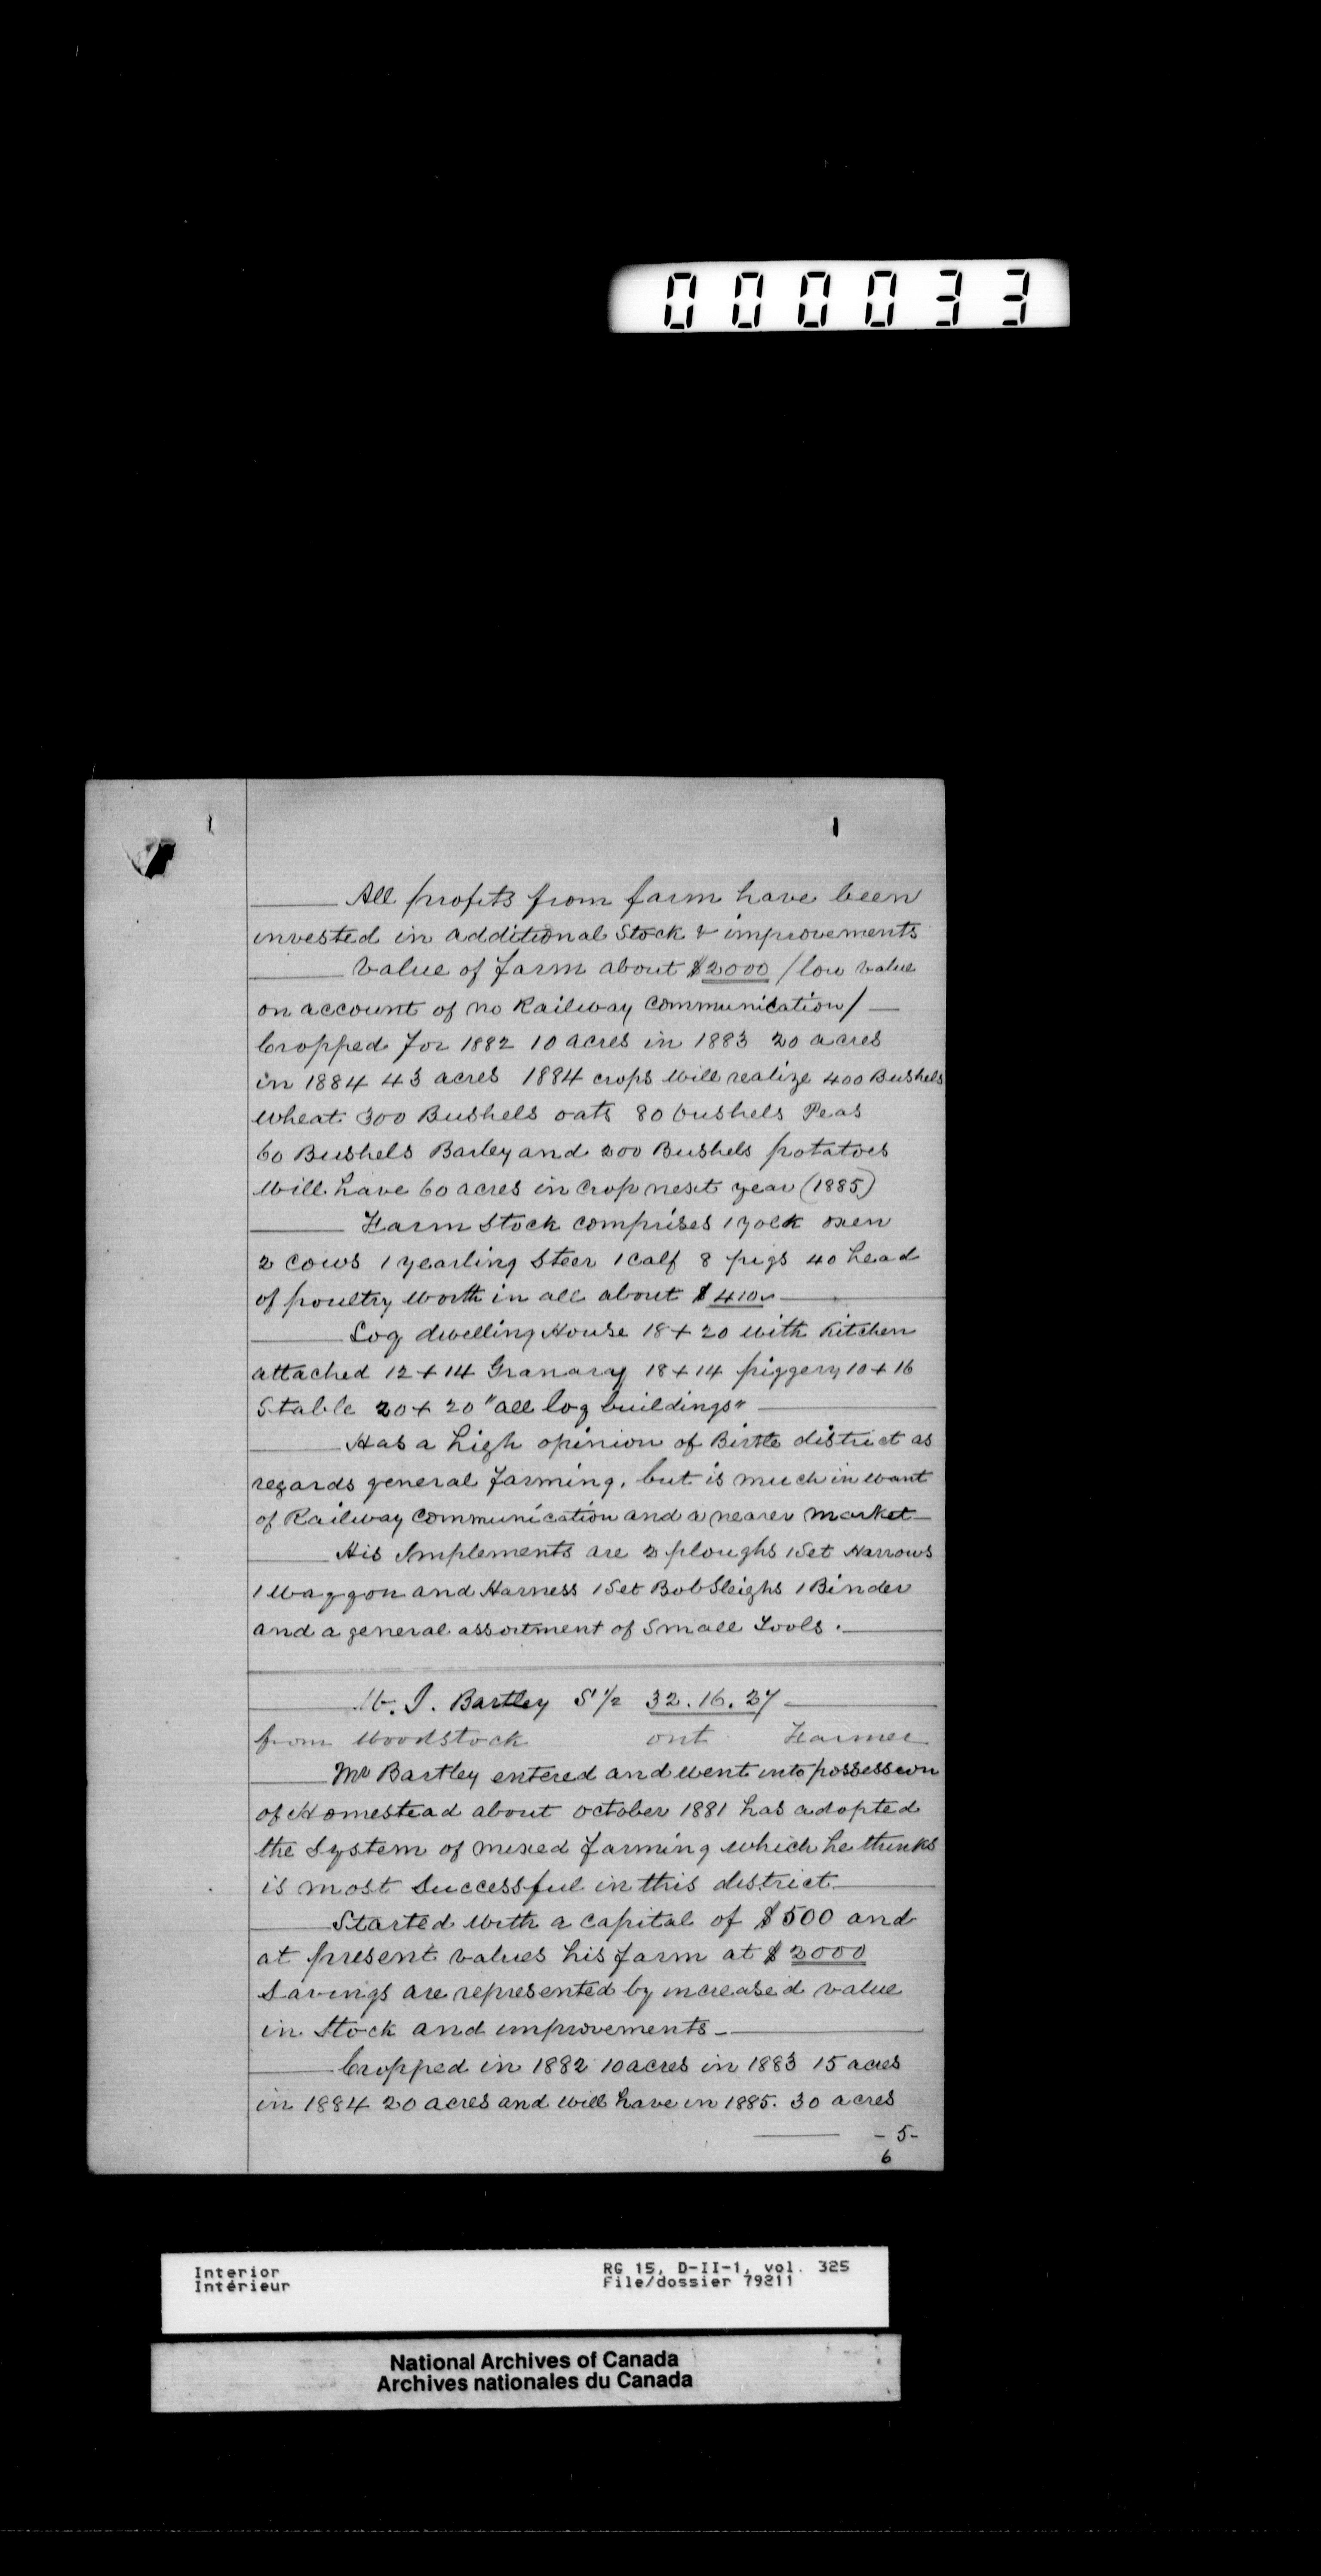 000033
All profits from farm have been
invested in additional Stock & improvements
Value of farm about $2000 / low value
on account of no Railway Communication /
Cropped for 1882 10 acres in 1883 20 acres
in 1884 43 acres 1884 crops will realize 400 Bushels
wheat 300 Bushels oats 80 bushels Peas
60 Bushels Barley and 200 Bushels potatoes
will have 60 acres in crop next year (1885)
Farm Stock comprises 1 yolk oxen
2 cows 1 yearling Steer 1 calf 8 pigs 40 head
of poultry worth in all about $410
Log dwelling House 18 + 20 with Kitchen
attached 12 + 14 Granary 18 + 14 piggery 10 + 16
Stable 20 + 20 "all log buildings"
Has a high opinion of Birtle district as
regards general farming, but is much in want
of Railway Communication and a nearer market
His Implements are 2 ploughs 1 Set Harrows
1 Waggon and Harness 1 Set BobSleighs 1 Binder
and a general assortment of Small Tools.
W. J. Bartley S 1/2 32.16.27
from Woodstock ont Farmer
Mr Bartley entered and went into possession
of Homestead about october 1881 has adopted
the System of mixed farming which he thinks
is most Successful in this district
Started with a capital of $500 and
at present values his farm at $2000
Savings are represented by increased value
in Stock and improvements
Cropped in 1882 10 acres in 1883 15 acres
in 1884 20 acres and will have in 1885. 30 acres
- 5 -
6
Interior RG 15, D-II-1, vol. 325
Intérieur File/dossier 79211
National Archives of Canada
Archives nationales du Canada